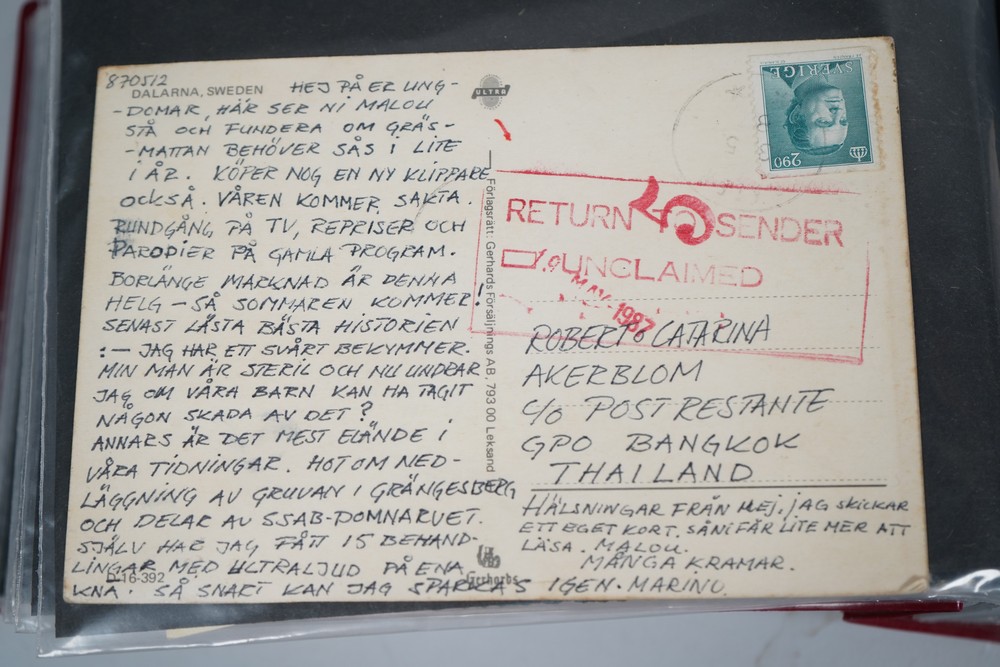 870512
DALARNA, SWEDEN HEJ PÅ ER UNG-
-DOMAR, HÄR SER NI MALOU
STÅ OCH FUNDERA OM GRÄS-
-MATTAN BEHÖVER SÅS I LITE
I ÅR. KÖPER NOG EN NY KLIPPARE
OCKSÅ. VÅREN KOMMER SAKTA.
RUNDGÅNG PÅ TV, REPRISER OCH
PARODIER PÅ GAMLA PROGRAM.
BORLÄNGE MARKNAD ÄR DENNA
HELG – SÅ SOMMAREN KOMMER!
SENAST LÄSTA BÄSTA HISTORIEN
:– JAG HAR ETT SVÅRT BEKYMMER.
MIN MAN ÄR STERIL OCH NU UNDRAR
JAG OM VÅRA BARN KAN HA TAGIT
NÅGON SKADA AV DET?
ANNARS ÄR DET MEST ELÄNDE I
VÅRA TIDNINGAR. HOT OM NED-
LÄGGNING AV GRUVAN I GRÄNGESBERG
OCH DELAR AV SSAB-DOMNARVET.
SJÄLV HAR JAG FÅTT 15 BEHAND-
LINGAR MED ULTRALJUD PÅ ENA
D-16-392
KNÄ. SÅ SNART KAN JAG SPARKAS IGEN. MARINO.
ULTRA
Förlagsrätt: Gerhards Försäljnings AB, 793 00 Leksand
Gerhards
SVERIGE
290
RETURN TO SENDER
UNCLAIMED
MAY 1987
ROBERT o CATARINA
AKERBLOM
C/O POSTRESTANTE
GPO BANGKOK
THAILAND
HÄLSNINGAR FRÅN MEJ. JAG SKICKAR
ETT EGET KORT. SÅ NI FÅR LITE MER ATT
LÄSA. MALOU.
MÅNGA KRAMAR.